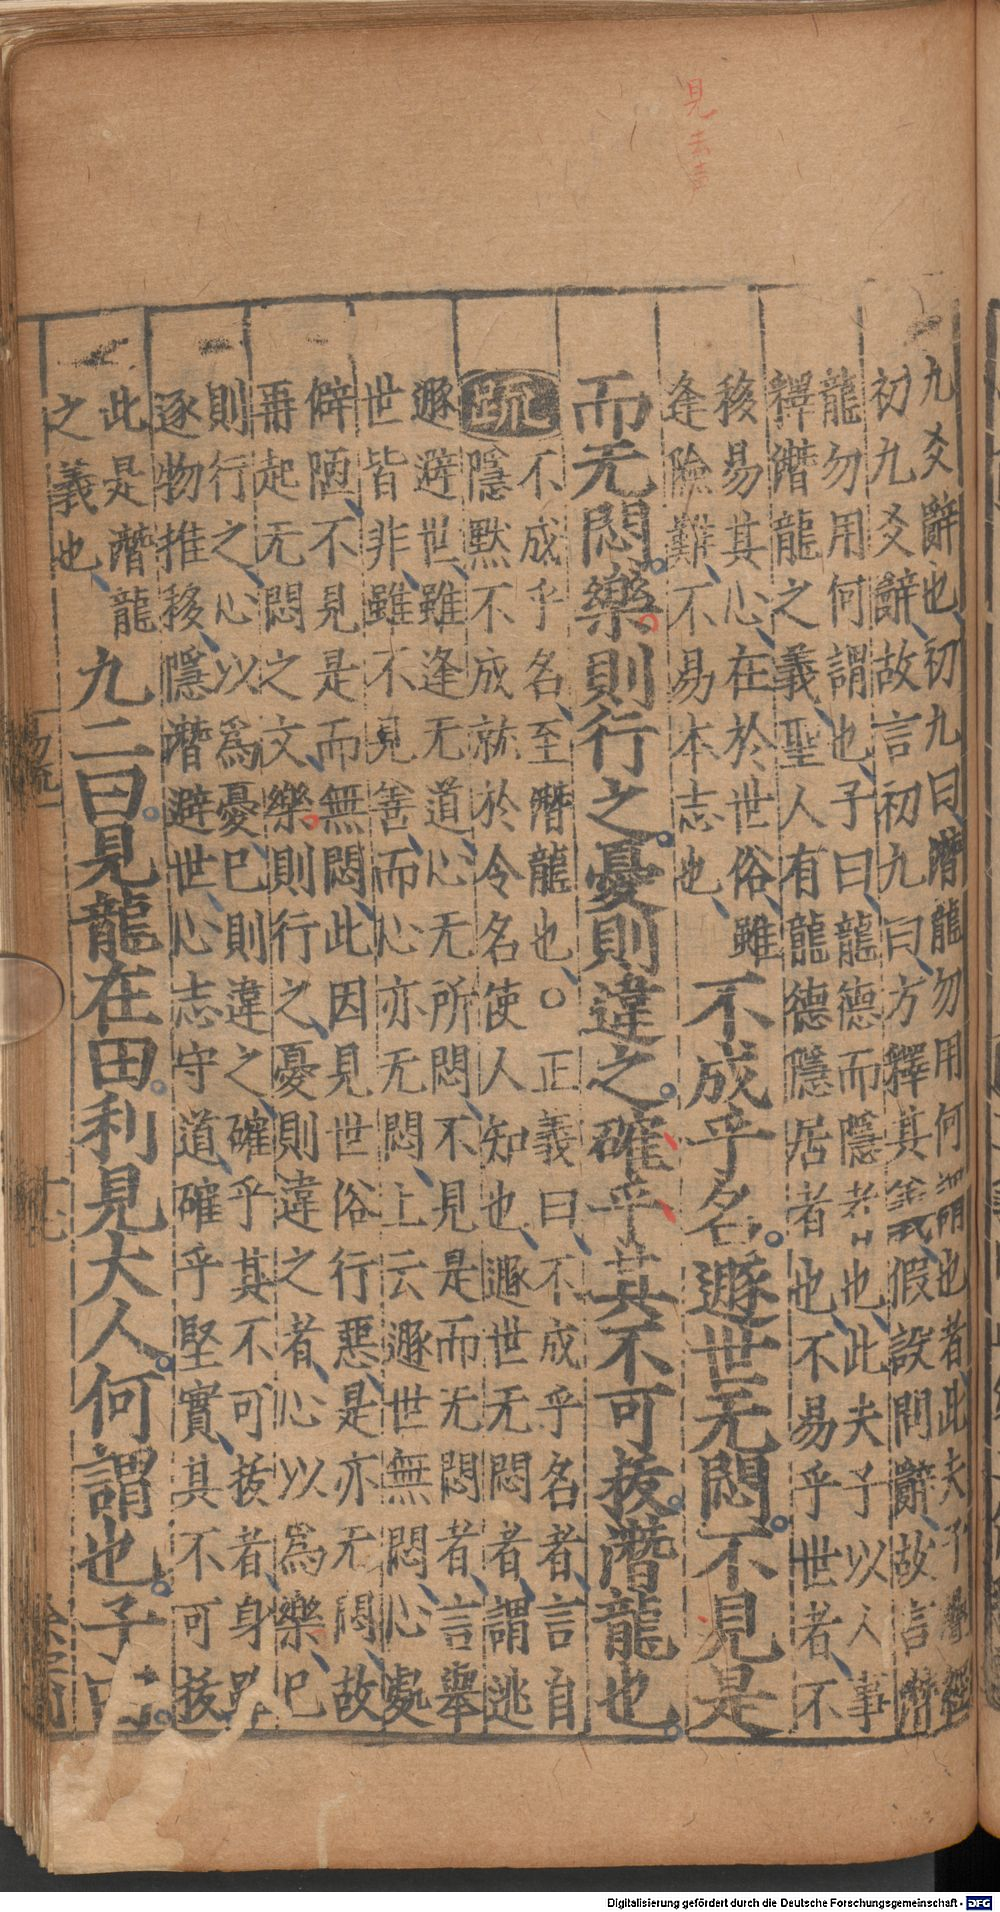 見去声
九爻辭也初九曰潛龍勿用何謂也者此夫子疊經
初九爻辭故言初九曰方釋其義假設問辭故言潛
龍勿用何謂也子曰龍德而隱者也此夫子以人事
釋潛龍之義聖人有龍德隱居者也不易乎世者不
移易其心在於世俗雖
逢險難不易本志也
不成乎名遯世无悶不見是
而无悶樂則行之憂則違之確乎其不可拔潛龍也
疏
不成乎名至潛龍也○正義曰不成乎名者言自
隱默不成就於令名使人知也遯世无悶者謂逃
遯避世雖逢无道心无所悶不見是而无悶者言舉
世皆非雖不見善而心亦无悶上云遯世無悶心處
僻陋不見是而無悶此因見世俗行惡是亦无悶故
再起无悶之文樂則行之憂則違之者心以爲樂已
則行之心以爲憂巳則違之確乎其不可拔者身雖
逐物推移隱潛避世心志守道確乎堅實其不可拔
此是潛龍
之義也
九二曰見龍在田利見大人何謂也子曰
Digitalisierung gefördert durch die Deutsche Forschungsgemeinschaft - DFG